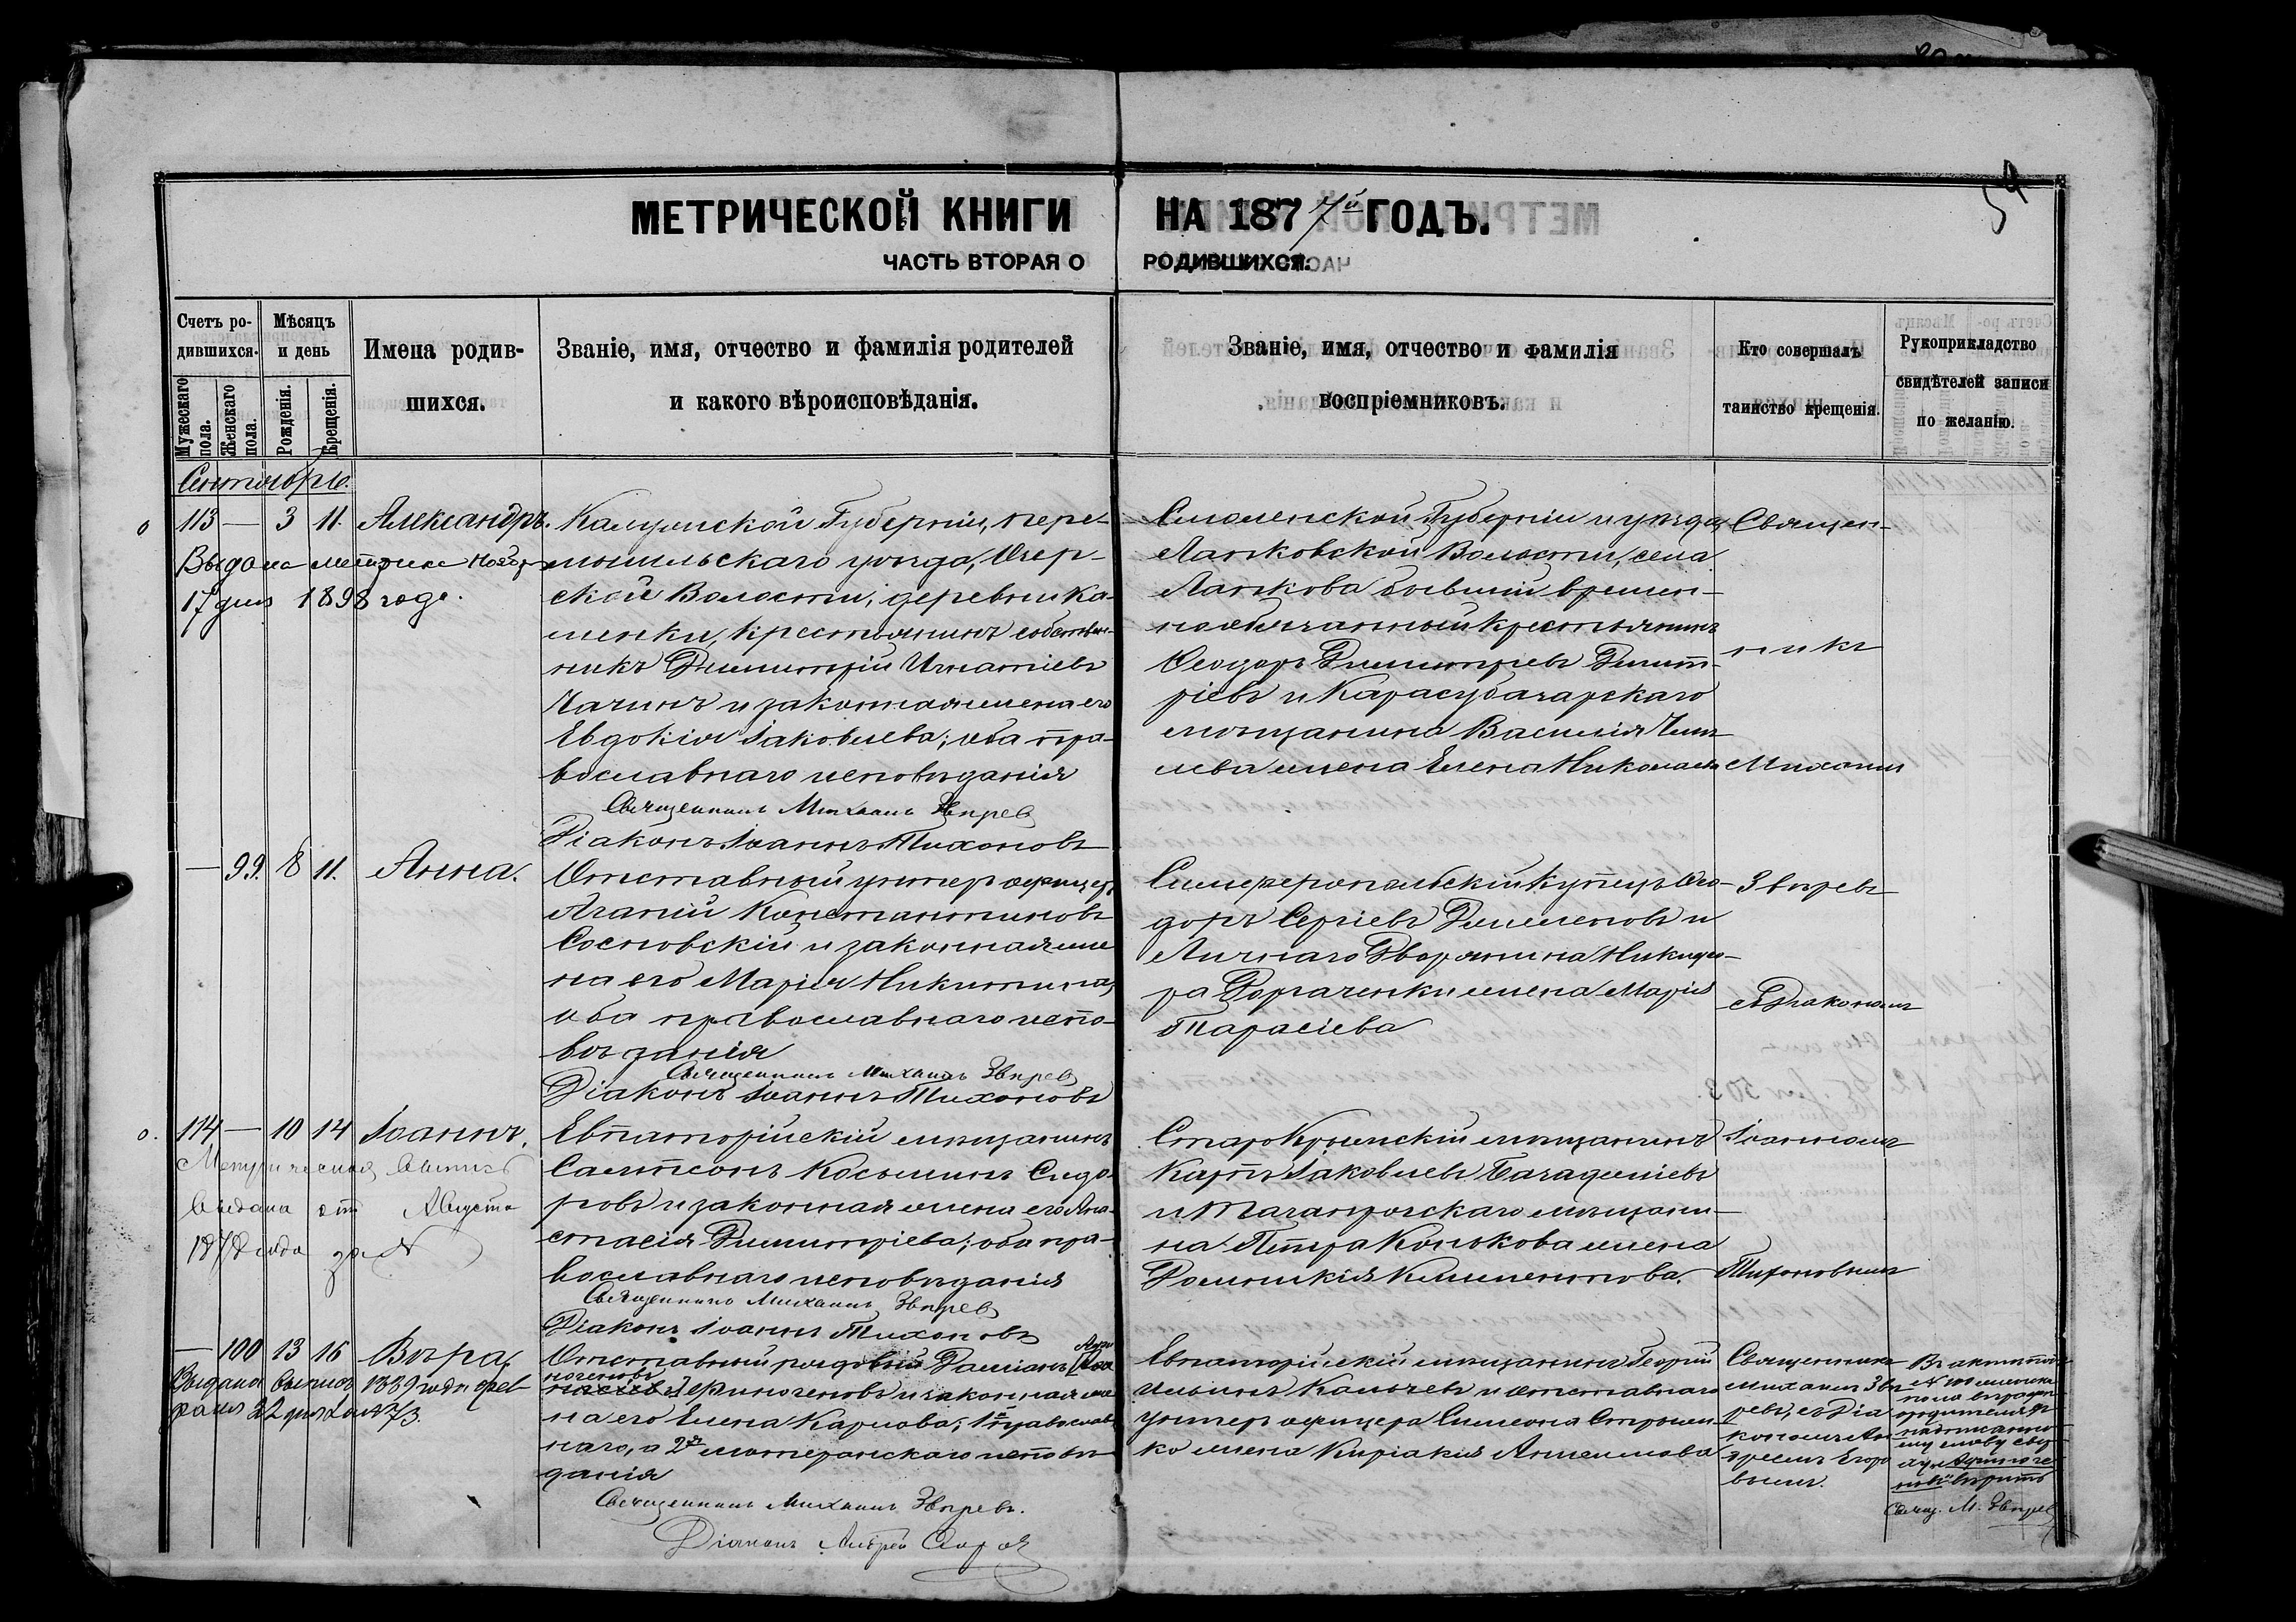 54
МЕТРИЧЕСКОЙ КНИГИ НА 1877й ГОДЪ.
ЧАСТЬ ВТОРАЯ О РОДИВШИХСЯ.
Счетъ ро-
дившихся.
Мужескаго пола.
Женскаго пола.
Мѣсяцъ
и день
Рожденія.
Крещенія.
Имена родив-
шихся.
Званіе, имя, отчество и фамилія родителей
и какого вѣроисповѣданія.
Званіе, имя, отчество и фамилія
воспріемниковъ.
Кто совершалъ
таинство крещенія.
Рукоприкладство
свидѣтелей записи
по желанію.
Сентябрь.
113 — 3 11. Александръ.
Выдана метрика Нояб
17 дня 1898 года.
Калужской Губерніи, пере-
мышльскаго уѣзда, Озер-
ской Волости, деревни Ка-
менки, крестьянинъ собствен-
никъ Димитрій Игнатіевъ
и законная жена его
Евдокія Іаковлева; оба пра-
вославнаго исповѣданія
Священникъ Михаилъ Звѣревъ
Діаконъ Іоаннъ Тихоновъ
Смоленской Губерніи и уѣзда
Волости, села
бывшій времен-
нообязанный крестьянинъ
Ѳеодоръ Димитріевъ Димит-
ріевъ и Карасубазарскаго
мѣщанина Василія
жена Елена Николаева
Священ-
никъ
Михаилъ
— 99. 8 11. Анна.
Отставный унтеръ офицеръ
Агапій Константиновъ
Сосновскій и законная же-
на его Марія Никитина,
оба православнаго испо-
вѣданія
Священникъ Михаилъ Звѣревъ
Діаконъ Іоаннъ Тихоновъ
Симферопольскій Купецъ Ѳео-
доръ Сергіевъ и
Личнаго Дворянина Никифо-
ра жена Марія
Тарасіева
Звѣревъ
съ Діакономъ
114 — 10 14 Іоаннъ.
Метрическая выпись
выдана отъ Августа
1878 года за №
Евпаторійскій мѣщанинъ
Сампсонъ Косьминъ Сидо-
ровъ и законная жена его Ана-
стасія Димитріева; оба пра-
вославнаго исповѣданія
Священникъ Михаилъ Звѣревъ
Діаконъ Іоаннъ Тихоновъ
Старокрымскій мѣщанинъ
Карпъ Іаковлевъ
и Таганрогскаго мѣщани-
на Петра Конькова жена
Домникія Климентова.
Іоанномъ
Тихоновымъ
— 100 13 16 Вѣра.
Выдана выпись 1889 года фев-
раля 22 дня за № 73.
Отставный рядовый Даміанъ
Финогеновъ и законная же-
на его Елена Карлова; 1й православ-
наго, а 2я лютеранскаго исповѣ-
данія
Священникъ Михаилъ Звѣревъ.
Діаконъ Андрей
Евпаторійскій мѣщанинъ Георгій
Ильинъ и отставнаго
унтеръ офицера Симеона
жена Киріакія
Священникъ
Михаилъ Звѣ-
ревъ, съ Діа-
кономъ Ан-
дреемъ Егоро-
вымъ.
Въ актѣ подъ
№ 100
вѣрить
Свящ. М. Звѣревъ